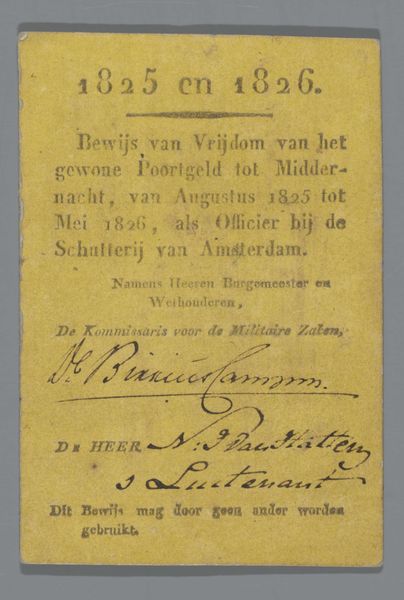 1825 en 1826.
Bewijs van Vrijdom van het
gewone Poortgeld tot Midder-
nacht, van Augustus 1825 tot
Mei 1826, als Officier bij de
Schutterij van Amsterdam.
Namens Heeren Burgemeester en
Wethouderen,
De Kommissaris voor de Militaire Zaken,
DE HEER N: J van
s Luitenant
Dit Bewijs mag door geen ander worden
gebruikt.